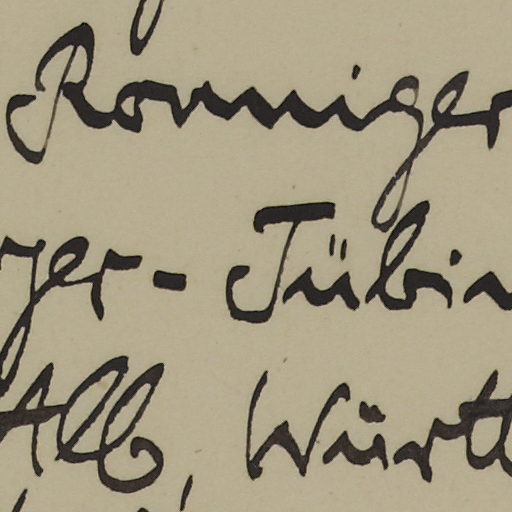 Ronniger
ger - Tübin
Alb, Württ